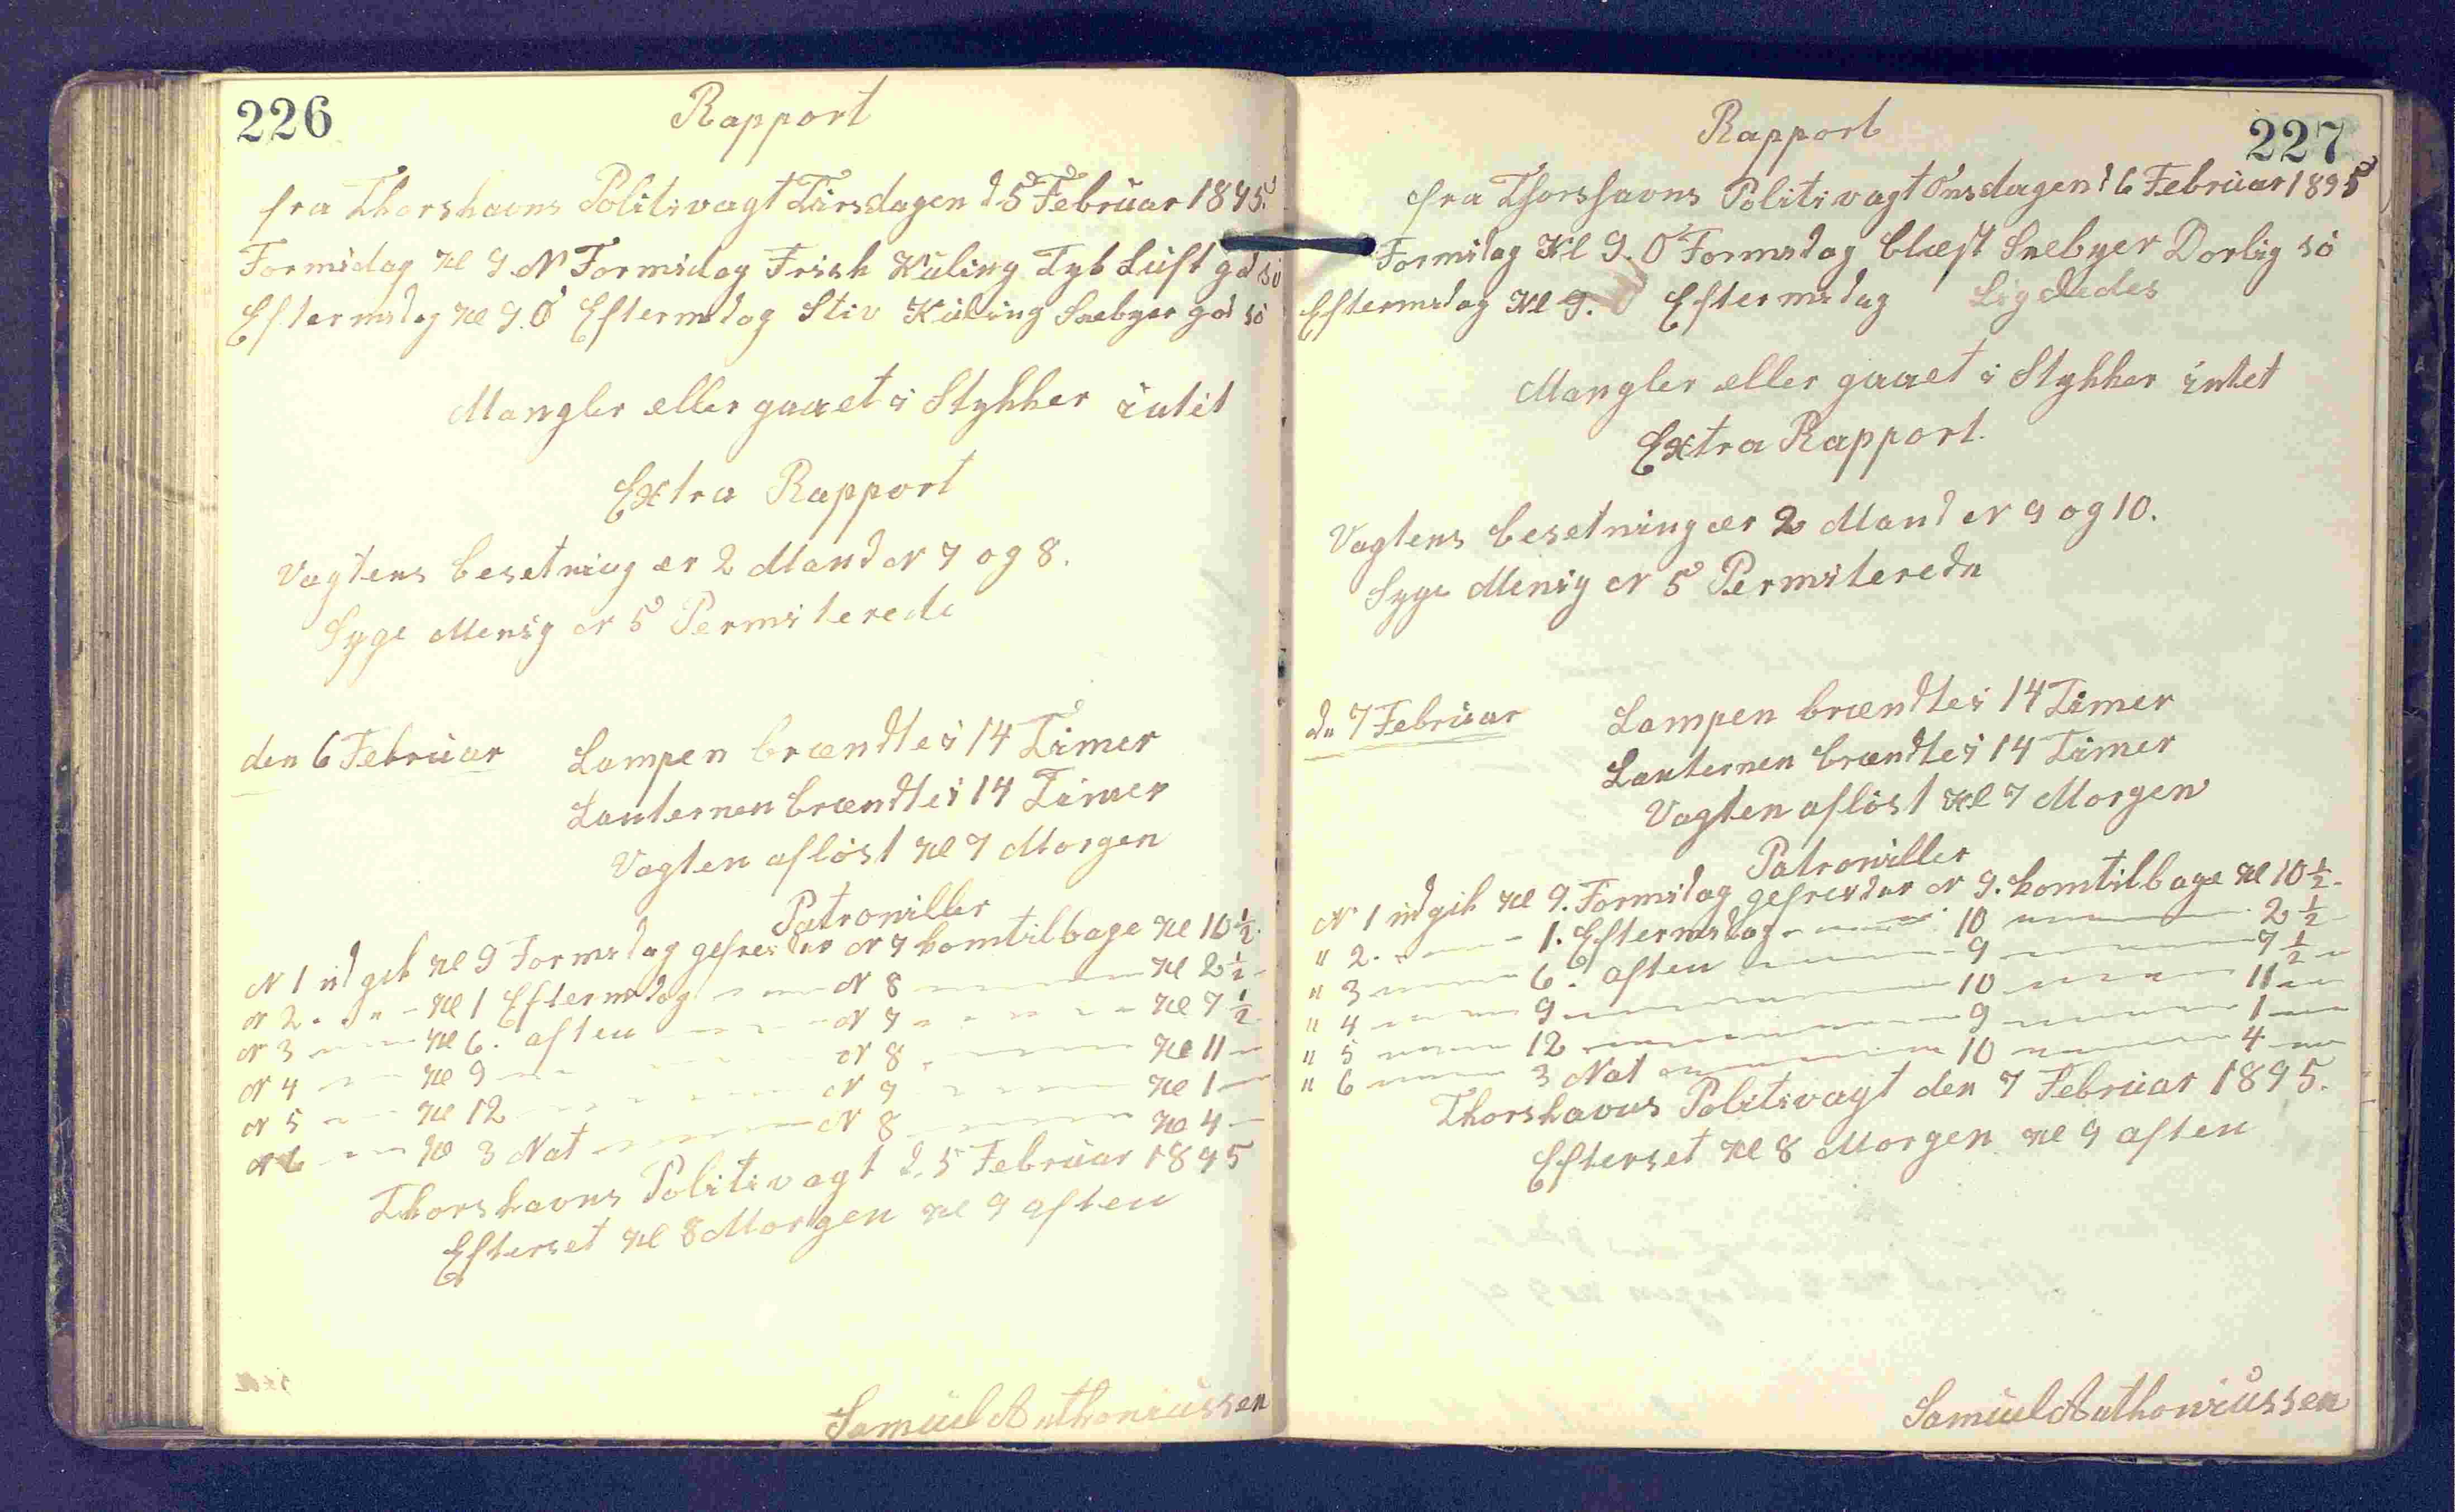 226
Rapport
fra Thorshavns Politivagt Tirsdagen d. 5 Februar 1895.
Formidag Kl 9. N Formidag Frisk Kuling Tyk Luft god sö
Eftermidag Kl 9. Ø Eftermidag Stiv Kuling Snebyer god sö
Mangler eller gaaet i Stykker intet
Extra Rapport
Vagtens besetning er 2 Mand N 7 og 8.
Syge Menig N 5 Permiterede
den 6 Februar Lampen brændtes i 14 Timer
Lanternen brændtes i 14 Timer
Vagten aflöst Kl 7 Morgen
Patroviller
N 1 udgik Kl 9 Formidag gefreidur N 7 kom tilbage Kl 10 ½.
N 2 " " - Kl 1 Eftermidag - - - N 8 - - - Kl 2 ½ -
N 3 - - - Kl 6. aften - - - N 7 - - - Kl 7 ½ -
N 4 - - - Kl 9 - - - N 8 - - - Kl 11 -
N 5 - - - Kl 12 - - - N 7 - - - Kl 1 -
N 6 - - - Kl 3 Nat - - - N 8 - - - Kl 4 -
Thorshavns Politivagt d. 5 Februar 1895
Efterset Kl 8 Morgen Kl 9 aften
Samuel Anthoniussen
227
Rapport
fra Thorshavns Politivagt Onsdagen d 6 Februar 1895
Formidag Kl 9. O Formidag blæst Snebyer Dorlig sö
Eftermidag Kl 9. O Eftermidag Ligeledes
Mangler eller gaaet i Stykker intet
Extra Rapport.
Vagtens besetning er 2 Mand N 9 og 10.
Syge Menig N 5 Permiterede
dn 7 Februar Lampen brændtes i 14 Timer
Lanternen brændtes i 14 Timer
Vagten aflöst Kl 7 Morgen
Patroviller
N 1 udgik Kl 9. Formidag gefreidur N 9. kom tilbage Kl 10 ½ -
" 2. - - - 1. Eftermidag - - - 10 - - - 2 ½ -
" 3 - - - 6. aften - - - 9 - - - 7 ½ -
" 4 - - - 9 - - - 10 - - - 11 -
" 5 - - - 12 - - - 9 - - - 1 -
" 6 - - - 3 Nat - - - 10 - - - 4 -
Thorshavns Politivagt den 7 Februar 1895.
Efterset Kl 8 Morgen Kl 9 aften
Samuel Anthoniussen